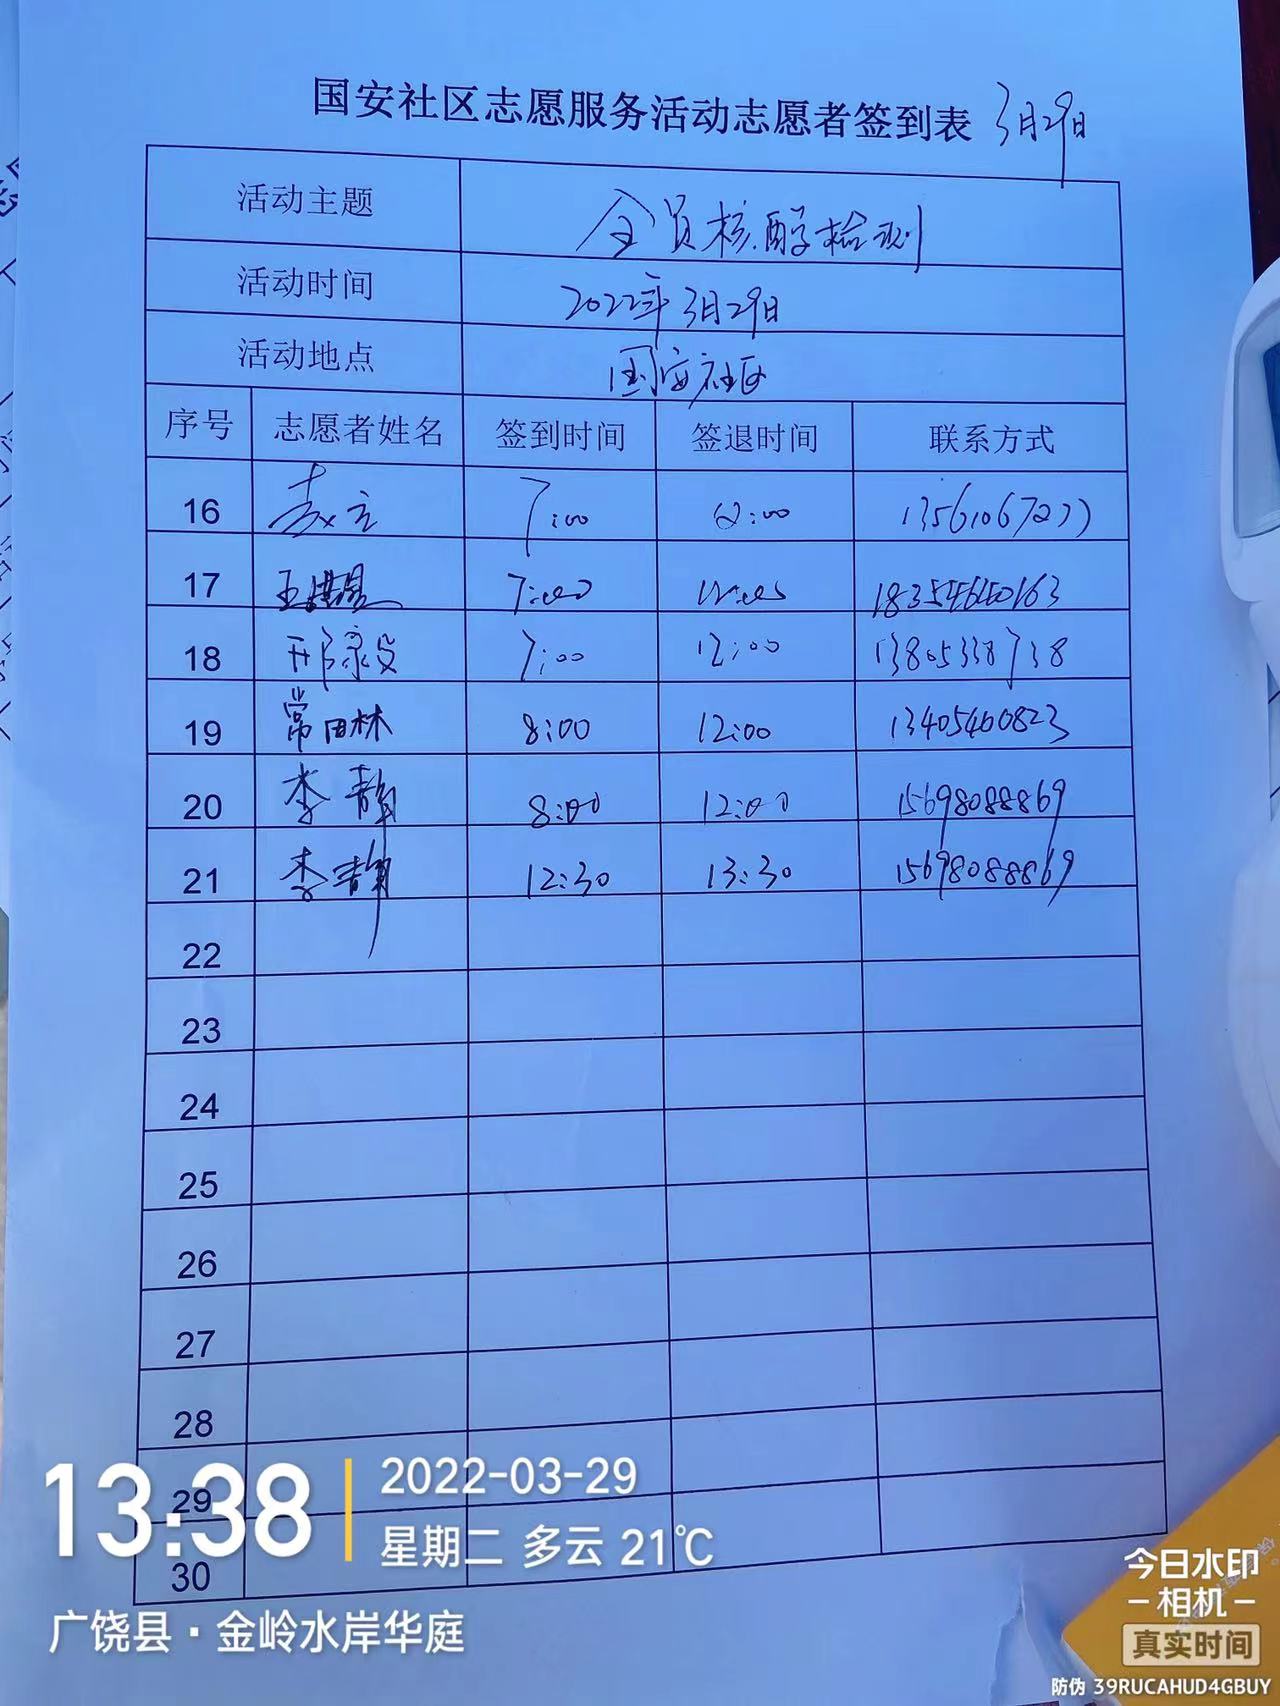 国安社区志愿服务活动志愿者签到表 3月29日
活动主题 全员核酸检测
活动时间 2022年3月29日
活动地点 国安社区
序号 志愿者姓名 签到时间 签退时间 联系方式
16 7:00 12:00
17 王 7:00 12:00 18354640163
18 邢 7:00 12:00 13805338738
19 常田林 8:00 12:00 13405460823
20 李静 8:00 12:00 15698088869
21 李静 12:30 13:30 15698088869
22
23
24
25
26
27
28
29
30
13:38
2022-03-29
星期二 多云 21℃
广饶县·金岭水岸华庭
今日水印
-相机-
真实时间
防伪 39RUCAHUD4GBUY